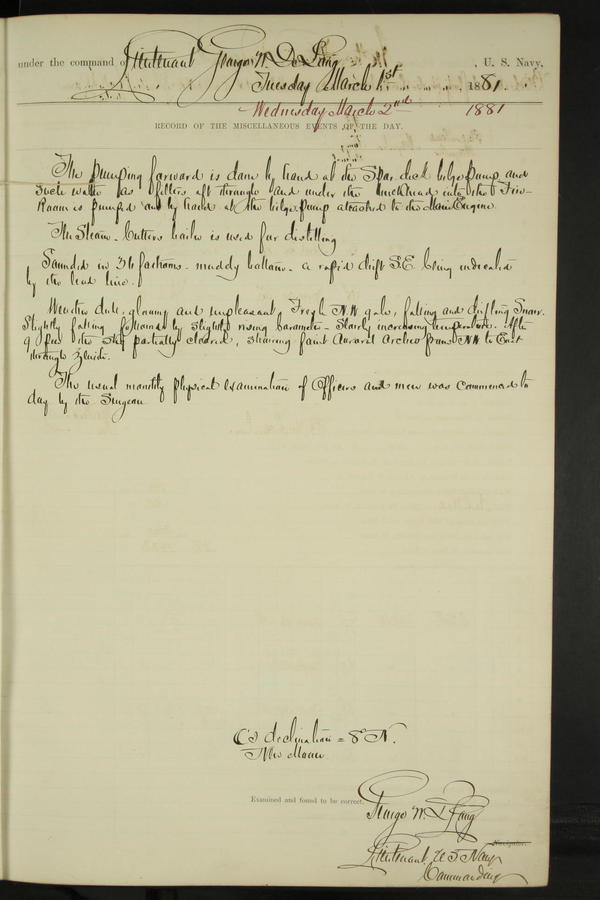 under the command of Lieutenant George W. De Long, U. S. Navy,
Tuesday March 1st, 1881.
Wednesday March 2nd 1881
RECORD OF THE MISCELLANEOUS EVENTS OF THE DAY.
The pumping forward is done by hand at the Spar deck bilge pump and
Such water as filters aft through and under the bulkhead into the Fire-
Room is pumped out by hand at the bilge pump attached to the Main Engine.
The Steam-Cutters boiler is used for distilling
Sounded in 36 fathoms - muddy bottom - a rapid drift S.E. being indicated
by the lead line.
Weather dull, gloomy and unpleasant, Fresh N.W. gale, falling and drifting Snow.
Slightly falling followed by slightly rising barometer - Slowly increasing temperature. After
9 pm the sky partially cleared, showing faint Auroral Arches from NW to East
through Zenith.
The usual monthly physical examination of Officers and men was commenced to
day by the Surgeon
C's declination = 8° N.
New Moon
Examined and found to be correct.
George W. De Long
Navigator.
Lieutenant U S Navy
Commanding